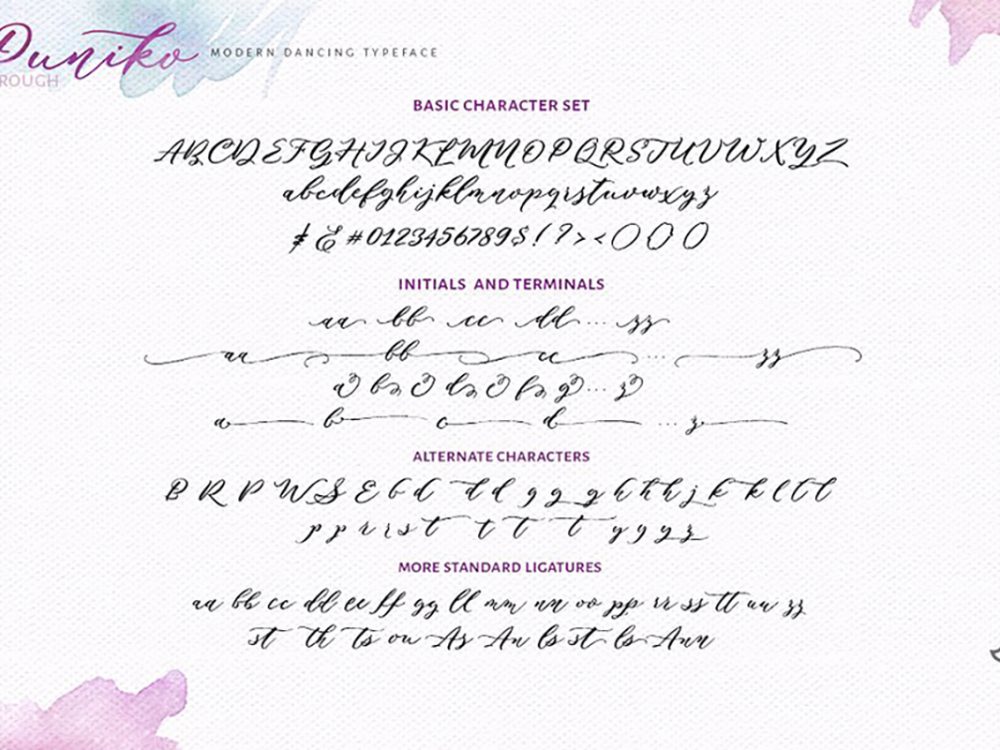 Puniko MODERN DANCING TYPEFACE
ROUGH
BASIC CHARACTER SET
ABCDEFGHIJKLMNOPQRSTUVWXYZ
abcdefghijklmnopqrstuvwxyz
#0123456789$!?><
INITIALS AND TERMINALS
aa bb cc dd ... zz
aa bb cc ... zz
a b c d e f g ... z
a b c d ... z
ALTERNATE CHARACTERS
B R P W S E b d d d g g g h h h j k k l t t
p p r r s t t t t y y y z
MORE STANDARD LIGATURES
aa bb cc dd ee ff gg ll mm nn oo pp rr ss tt uu zz
st th ts ow As An ls st ls Ann